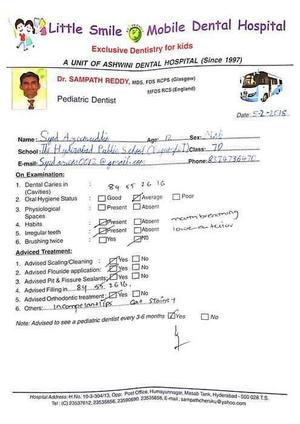 Little Smile Mobile Dental Hospital
Exclusive Dentistry for kids
A UNIT OF ASHWINI DENTAL HOSPITAL (Since 1997)
Dr. SAMPATH REDDY, MDS, FDS RCPS (Glasgow)
MFDS RCS (England)
Pediatric Dentist
Date: 5-2-2018
Name: Syed Age: 12 Sex:
School: The Hyderabad Public School Class:
Email: Phone:
On Examination:
1. Dental Caries in (Cavities) 84 55 26 16
2. Oral Hygiene Status Good Average Poor
3. Physiological Spaces Present Absent
4. Habits Present Absent mouth breathing
5. Irregular teeth Present Absent lower anterior
6. Brushing twice Yes No
Adviced Treatment:
1. Advised Scaling/Cleaning : Yes No
2. Advised Flouride application: Yes No
3. Advised Pit & Fissure Sealants: Yes No
4. Advised Filling in 84 55 26 16
5. Advised Orthodontic treatment: Yes No
6. Others:
Note: Advised to see a pediatric dentist every 3-6 months Yes No
Hospital Address: H.No. 10-3-304/13, Opp: Post Office, Humayunnagar, Masab Tank, Hyderabad - 500 028 T.S.